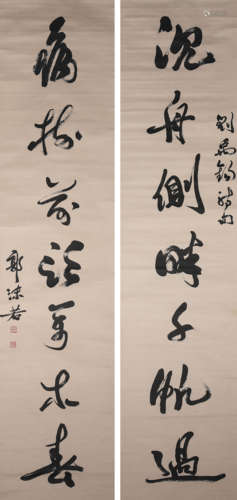 沉舟側畔千帆過
劉禹錫詩句
病樹前頭萬木春
郭沫若